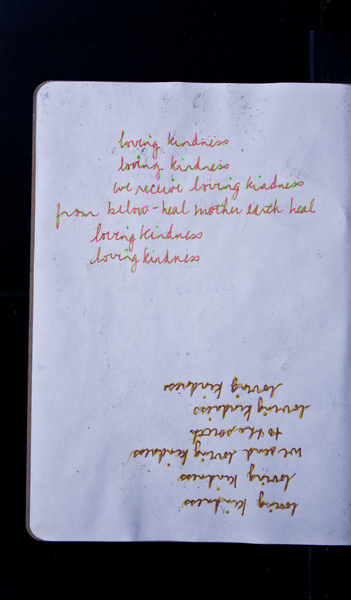 loving kindness
loving kindness
we receive loving kindness
from below - heal mother earth heal
loving kindness
loving kindness
loving kindness
loving kindness
we send loving kindness
to the south
loving kindness
loving kindness